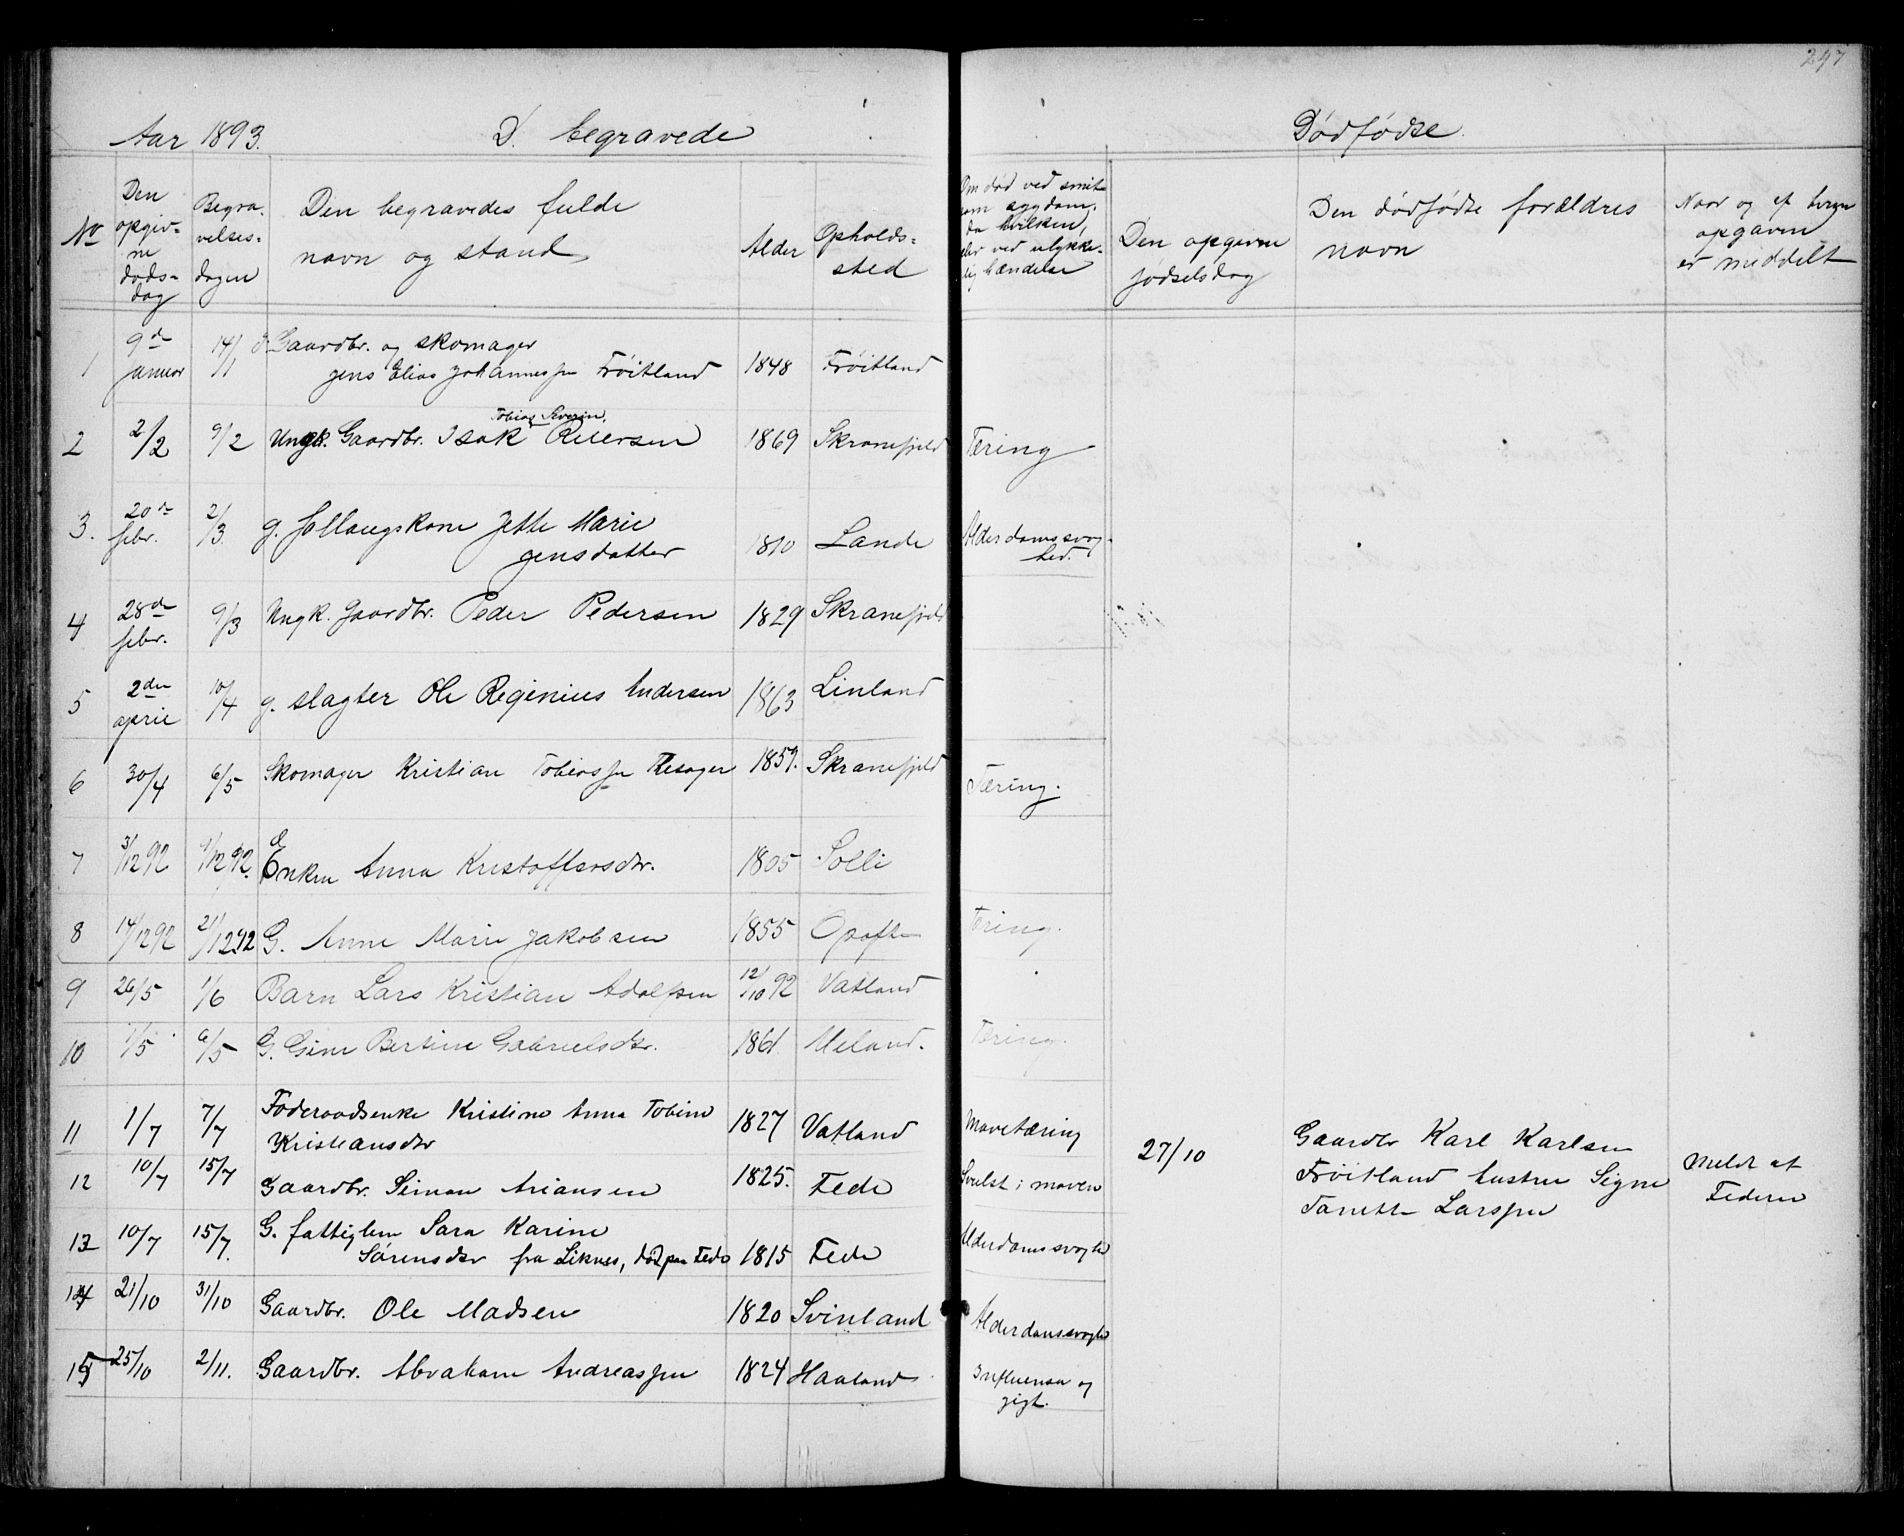 297
Aar 1893. D. begravede Dødfødte.
No | Den opgivne dødsdag | Begravelsesdagen | Den begravedes fulde navn og stand | Alder | Opholdssted | Om død ved smitsom sygdom, da hvilken, eller ved ulykkelig hændelse | Den opgivne fødselsdag | Den dødfødte forældres navn | Naar og af hvem opgaven er meddelt
1 9de januar 14/1 Gaardbr. og skomager
Jens Elias Johannessen Frøitland 1848 Frøitland
Tobias Severin
2 2/2 9/2 Ungk. Gaardbr. Isak Reiersen 1869 Skranefjeld Tæring
3. 20de febr. 2/3 g. Marie
Jensdatter 1810 Lande Alderdomssvaghed.
4 28de febr. 9/3 Ungk. Gaardbr. Peder Pedersen 1829 Skranefjeld
5 2den april 10/4 g. slagter Ole Reginius Andersen 1863 Linland
6 30/4 6/5 Skomager Kristian Tobiassen 1859. Skranefjeld Tæring.
7 3/12 92 9/12 92. Enken Anna Kristoffersdtr. 1805 Solli
8 14/12 92 21/12 92 G. Anne Marie Jakobsen 1855 Opofte Tæring.
9 26/5 1/6 Barn Lars Kristian Adolfsen 12/10 92 Vatland
10 1/5 6/5 G. Bertine Gabrielsdtr. 1861 Meland. Tæring.
11 1/7 7/7 Føderaadsenke Kristine Anna Tobine
Kristiansdtr 1827 Vatland Mavetæring
12 10/7 15/7 Gaardbr. Simon Ariansen 1825. Fede Svulst i maven
13 10/7 15/7. G. fattiglem Sara Karine
Sørensdtr fra Liknes, død paa Fede 1815 Fede Alderdomssvaghed
14 21/10 31/10 Gaardbr. Ole Madsen 1820 Svinland Alderdomssvaghed
15 25/10 2/11. Gaardbr. Abraham Andreassen 1824 Haaland Influensa og
gigt.
27/10 Gaardbr Karl Karlsen
Frøitland hustru Signe
Tanette Larssen
Meldt af
Federen